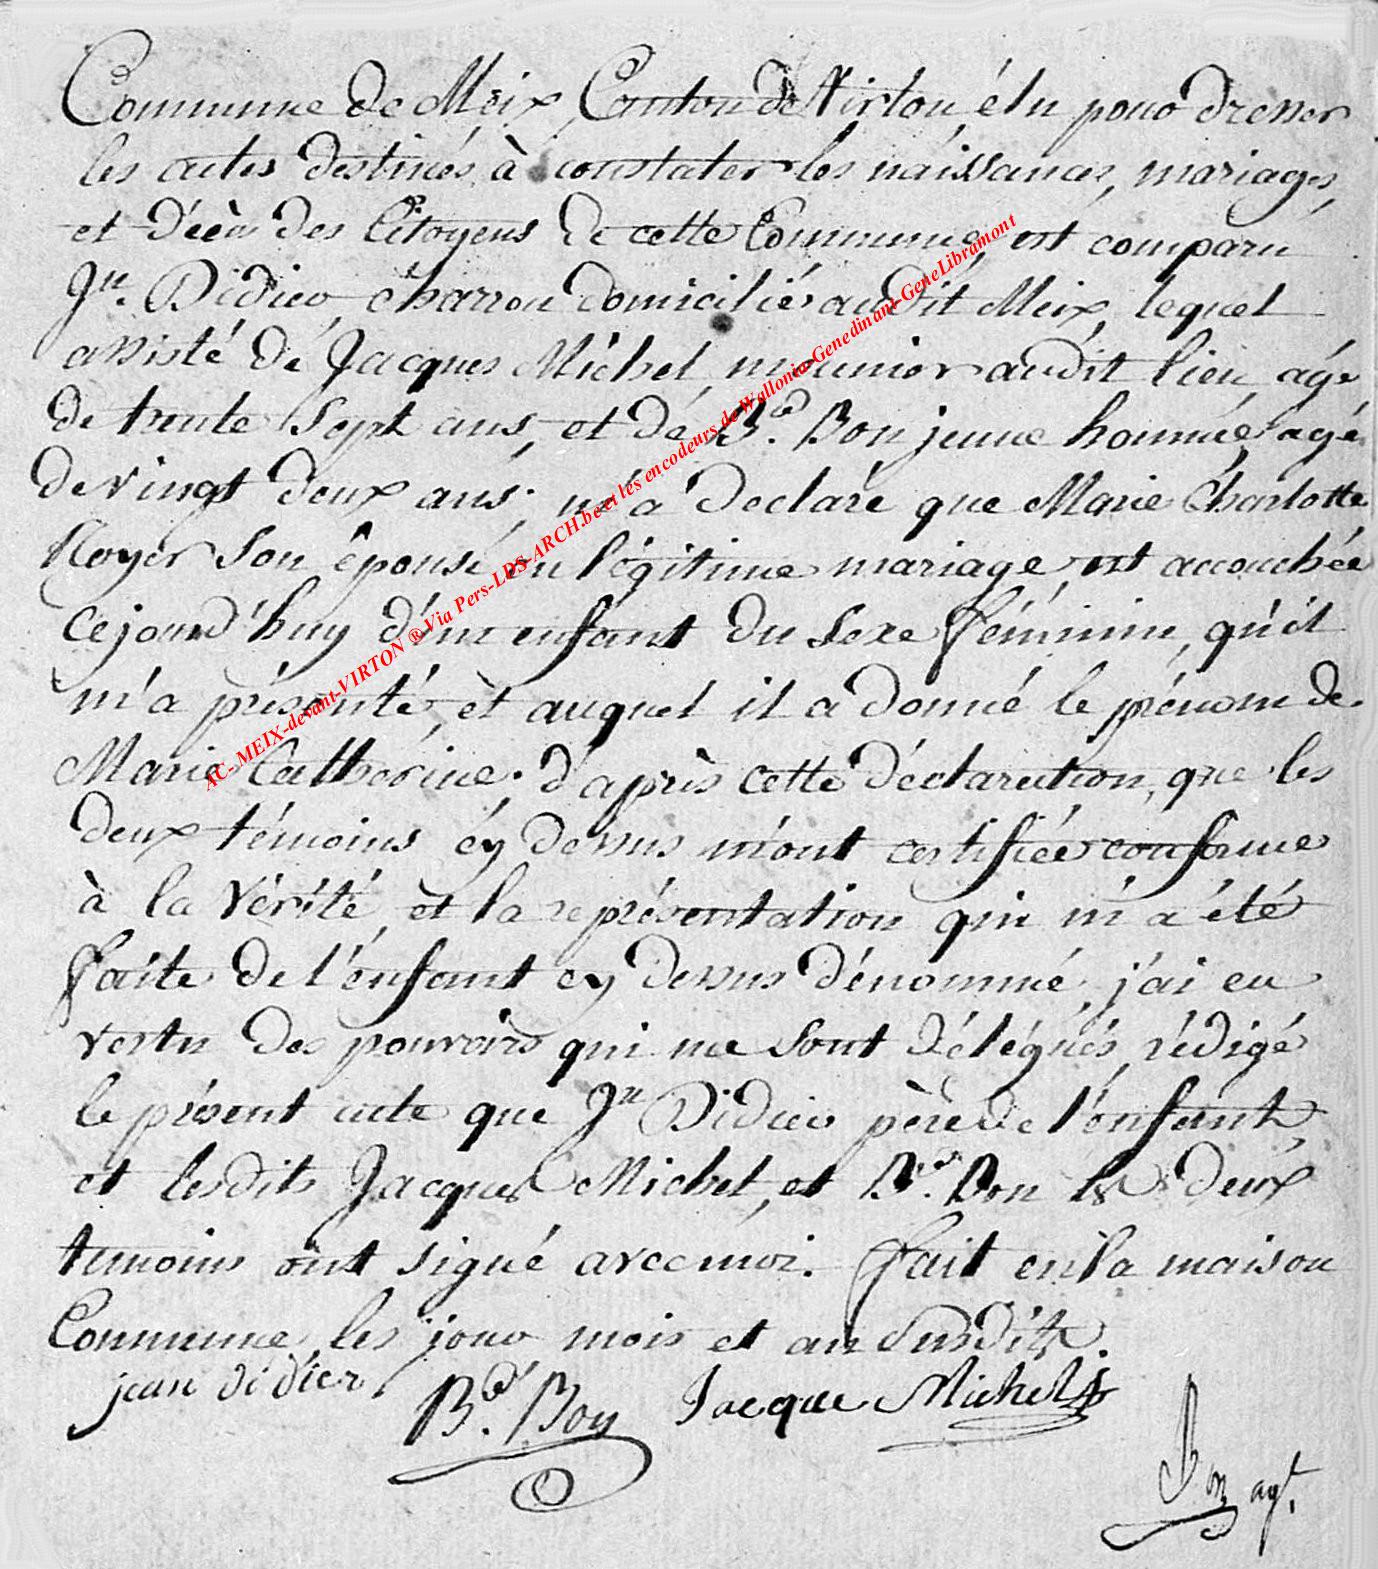 Commune de Meix, Canton de Virton, élu pour dresser
les actes destinés à constater les naissances, mariages,
et décès des Citoyens de cette Commune, est comparu
Jn. Didier, charron domicilié audit Meix, lequel
assisté de Jacques Michel, meunier audit lieu, agé
de trente sept ans, et de Bd. Bon jeune homme, agé
de vingt deux ans; m'a déclaré que Marie Charlotte
Noyer son épouse en légitime mariage, est accouchée
cejourd'huy d'un enfant du sexe féminin, qu'il
m'a présenté, et auquel il a donné le prénom de
Marie Catherine; d'après cette déclaration, que les
deux témoins cy dessus m'ont certifiée conforme
à la vérité, et la représentation qui m'a été
faite de l'enfant cy dessus dénommé, j'ai en
vertu des pouvoirs qui me sont délégués, rédigé
le présent acte que Jn Didier père de l'enfant,
et lesdits Jacques Michel, et Bd. Bon les deux
temoins ont signé avec moi. fait en la maison
Commune, les jour mois et an susdits.
jean didier Bd. Bon Jacque Michel
Bon agt.
AC-MEIX-devant-VIRTON ® Via Pers-LDS-ARCH.be et les encodeurs de Wallonia-Genedinant-GeneLibramont